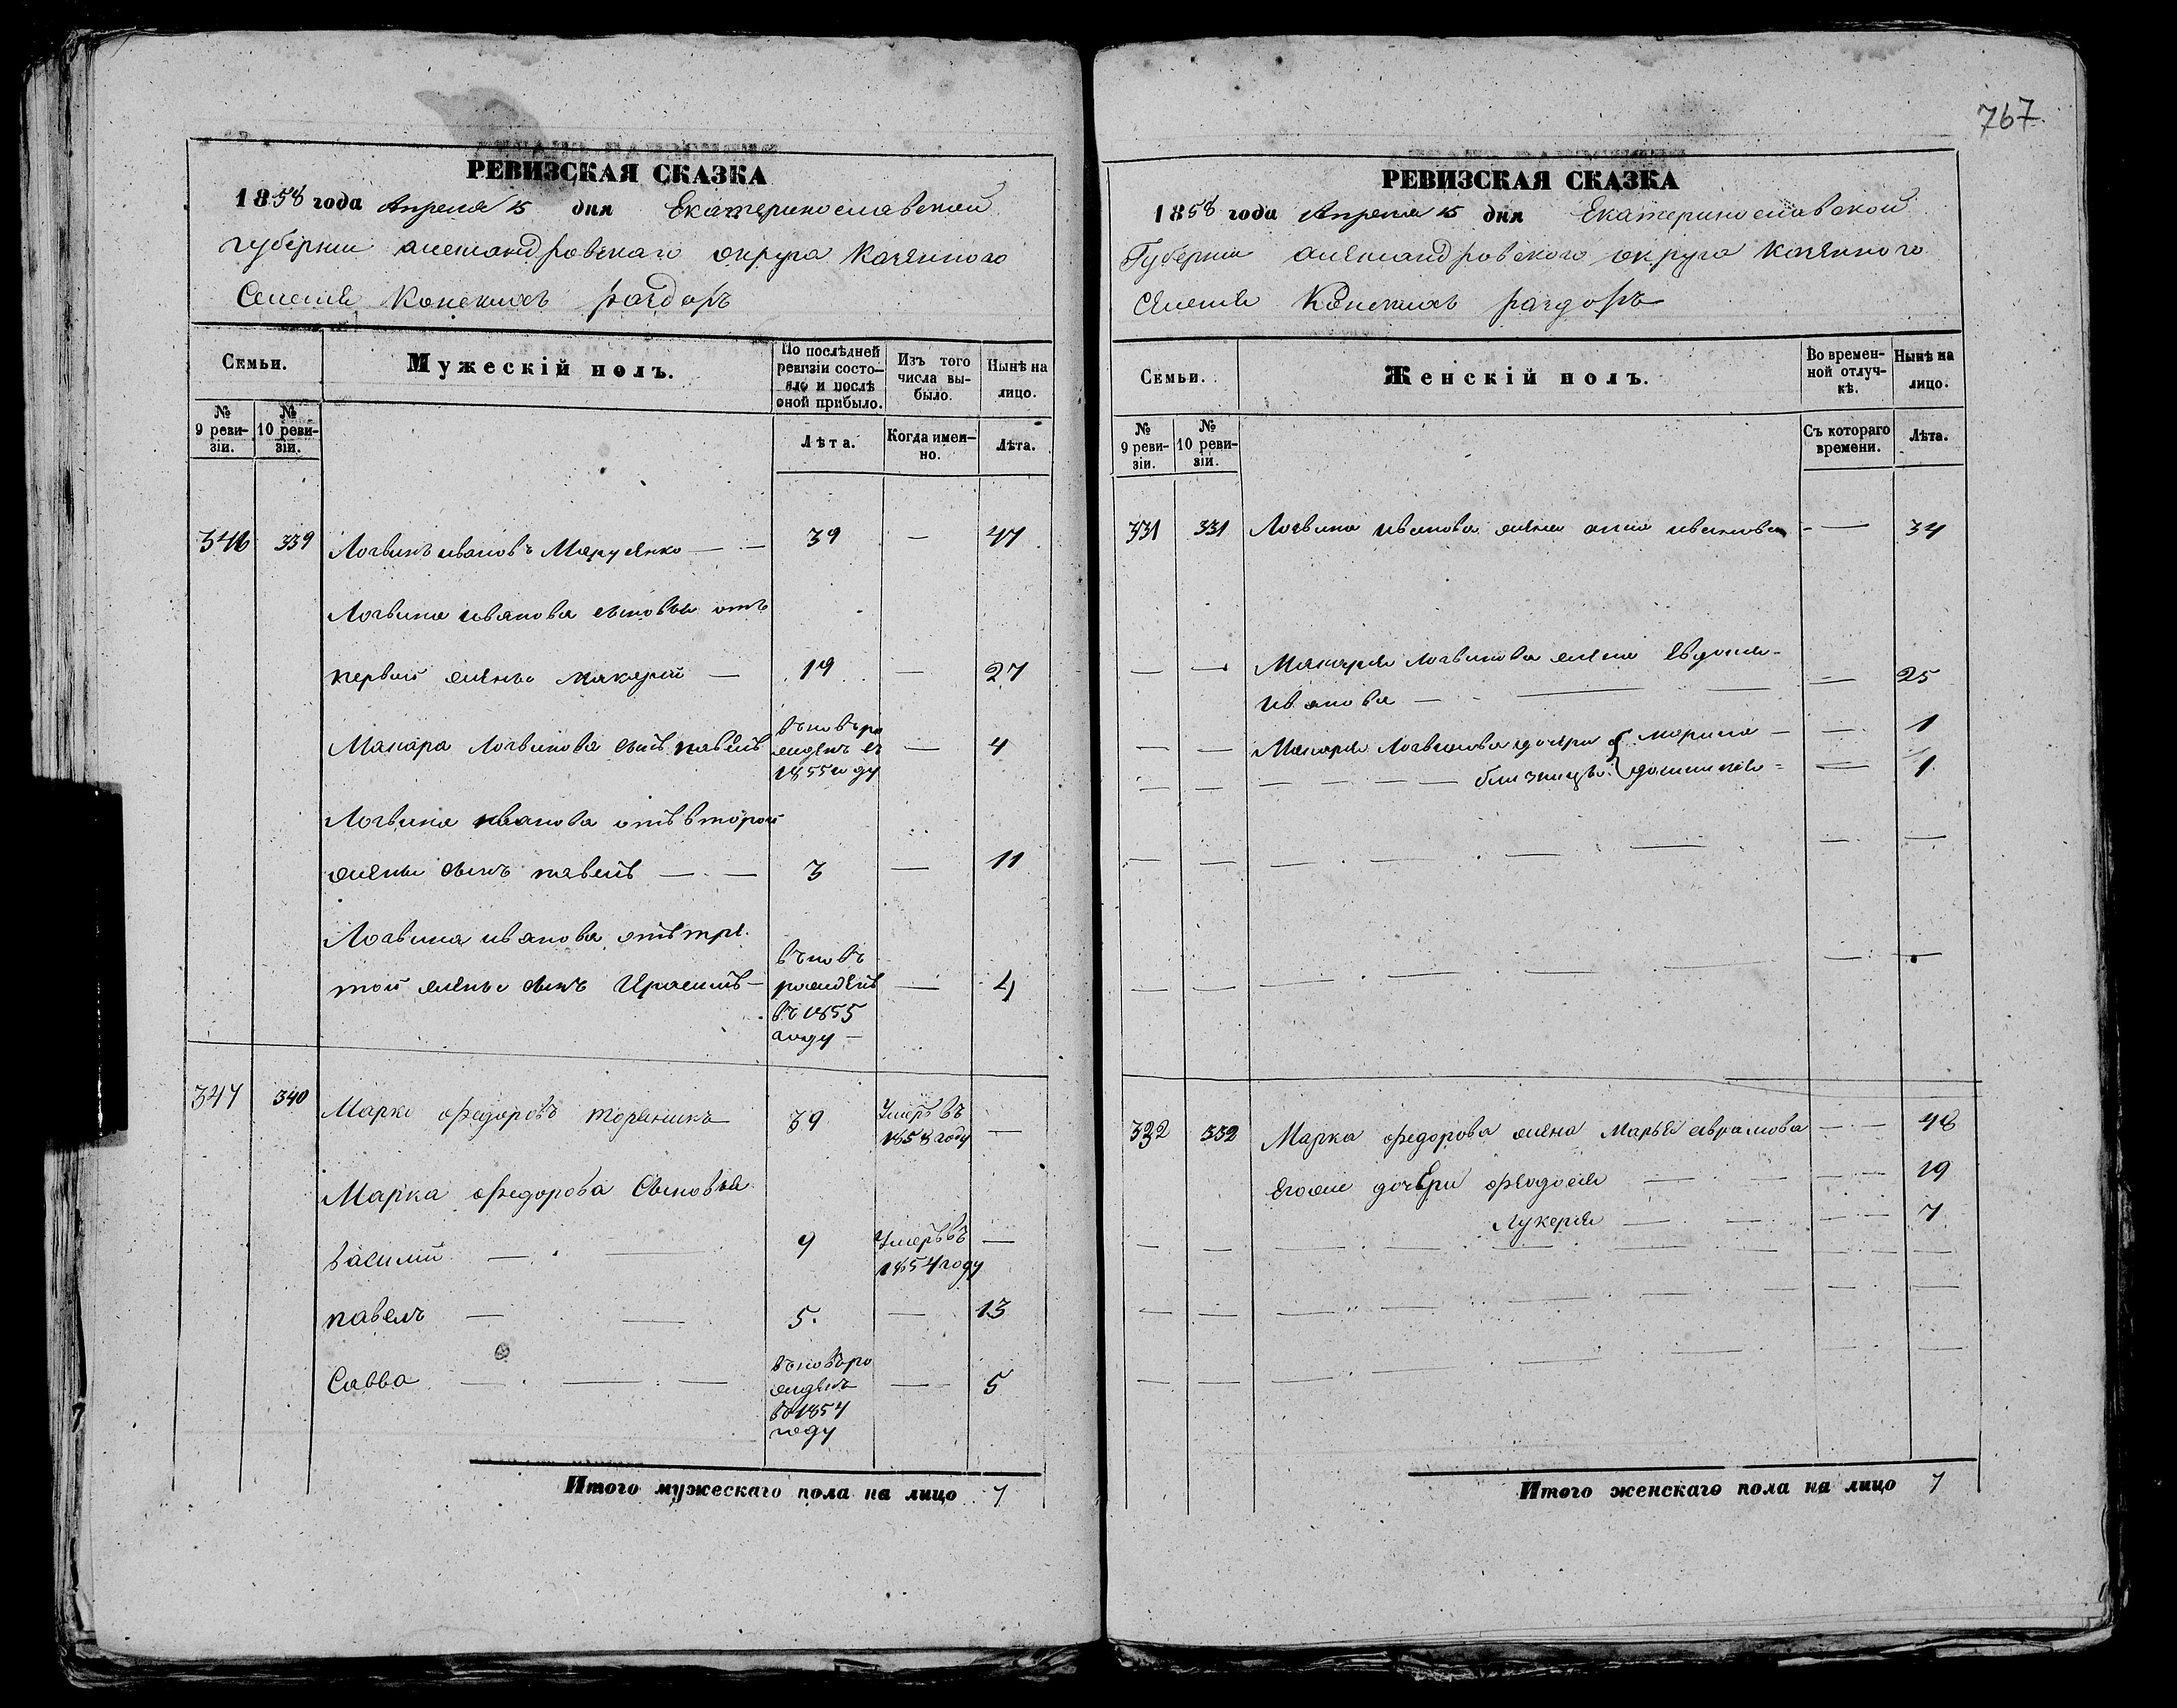 767.
РЕВИЗСКАЯ СКАЗКА
1858 года Апреля 15 дня Екатеринославской
губернии александровскаго округа казенного
Селения Конскихъ раздоръ
Семьи.
Мужескій полъ.
По послѣдней ревизіи состояло и послѣ оной прибыло.
Изъ того числа выбыло.
Нынѣ на лицо.
№ 9 ревизіи.
№ 10 ревизіи.
Лѣта.
Когда именно.
Лѣта.
346 339 Логвинъ ивановъ Марусенко — 39 — 47
Логвина иванова сыновья отъ
первой жены макарий — 19 — 27
Макара Логвинова сынъ павелъ вновь рожденъ въ 1855 году — 4
Логвина иванова отъ второй
жены сынъ павелъ — 3 — 11
Логвина иванова отъ тре
той жены сынъ вновь рожденъ въ 1855 году — 4
347 340 Марко федоровъ 39 Умеръ въ 1858 году —
Марка федорова Сыновья
василий — 9 Умеръ въ 1854 году —
павелъ — 5. — 13
Савва — вновь рожденъ въ 1854 году — 5
Итого мужескаго пола на лицо 7
РЕВИЗСКАЯ СКАЗКА
1858 года Апреля 15 дня Екатеринославской
Губернии александровского округа казенного
селения Конскихъ раздоръ
Семьи.
Женскій полъ.
Во временной отлучкѣ.
Нынѣ на лицо.
№ 9 ревизіи.
№ 10 ревизіи.
Съ котораго времени.
Лѣта.
331 331 Логвина иванова жена анна иванова — 34
— — Макария логвинова жена Евдокия
иванова — — 25
— — Макария Логвинова дочери { марина — — 1
— — — близнецы { домникия — 1
332 332 Марка федорова жена Марья аврамова — 48
Егоже дочери феодосия — — 19
Лукерия — — 7
Итого женскаго пола на лицо 7